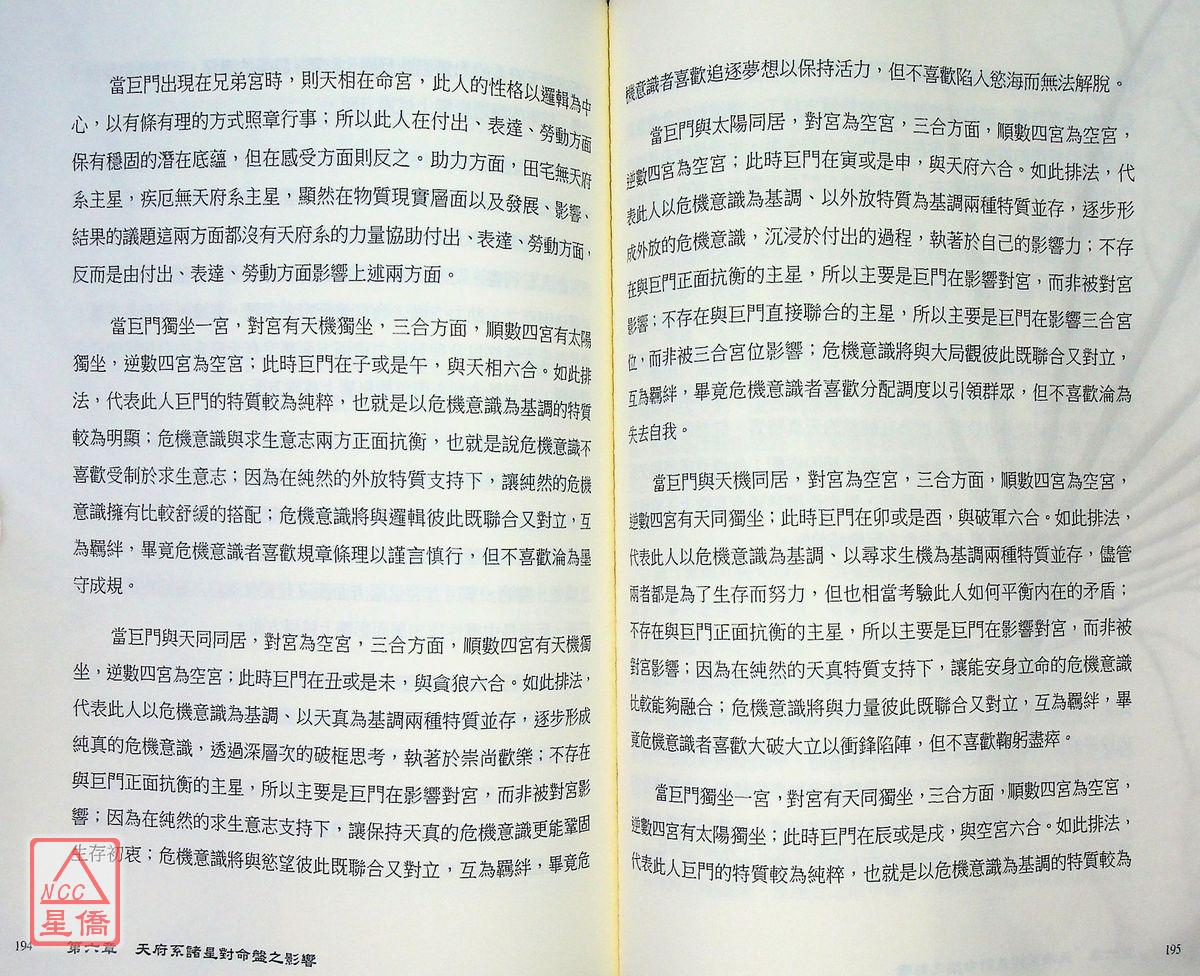 當巨門出現在兄弟宮時，則天相在命宮，此人的性格以邏輯為中
心，以有條有理的方式照章行事；所以此人在付出、表達、勞動方面
保有穩固的潛在底蘊，但在感受方面則反之。助力方面，田宅無天府
系主星，疾厄無天府系主星，顯然在物質現實層面以及發展、影響、
結果的議題這兩方面都沒有天府系的力量協助付出、表達、勞動方面，
反而是由付出、表達、勞動方面影響上述兩方面。
當巨門獨坐一宮，對宮有天機獨坐，三合方面，順數四宮有太陽
獨坐，逆數四宮為空宮；此時巨門在子或是午，與天相六合。如此排
法，代表此人巨門的特質較為純粹，也就是以危機意識為基調的特質
較為明顯；危機意識與求生意志兩方正面抗衡，也就是說危機意識不
喜歡受制於求生意志；因為在純然的外放特質支持下，讓純然的危機
意識擁有比較舒緩的搭配；危機意識將與邏輯彼此既聯合又對立，互
為羈絆，畢竟危機意識者喜歡規章條理以謹言慎行，但不喜歡淪為墨
守成規。
當巨門與天同同居，對宮為空宮，三合方面，順數四宮有天機獨
坐，逆數四宮為空宮；此時巨門在丑或是未，與貪狼六合。如此排法，
代表此人以危機意識為基調、以天真為基調兩種特質並存，逐步形成
純真的危機意識，透過深層次的破框思考，執著於崇尚歡樂；不存在
與巨門正面抗衡的主星，所以主要是巨門在影響對宮，而非被對宮影
響；因為在純然的求生意志支持下，讓保持天真的危機意識更能鞏固
生存初衷；危機意識將與慾望彼此既聯合又對立，互為羈絆，畢竟危
NCC
星僑
194 第六章 天府系諸星對命盤之影響
機意識者喜歡追逐夢想以保持活力，但不喜歡陷入慾海而無法解脫。
當巨門與太陽同居，對宮為空宮，三合方面，順數四宮為空宮，
逆數四宮為空宮；此時巨門在寅或是申，與天府六合。如此排法，代
表此人以危機意識為基調、以外放特質為基調兩種特質並存，逐步形
成外放的危機意識，沉浸於付出的過程，執著於自己的影響力；不存
在與巨門正面抗衡的主星，所以主要是巨門在影響對宮，而非被對宮
影響；不存在與巨門直接聯合的主星，所以主要是巨門在影響三合宮
位，而非被三合宮位影響；危機意識將與大局觀彼此既聯合又對立，
互為羈絆，畢竟危機意識者喜歡分配調度以引領群眾，但不喜歡淪為
失去自我。
當巨門與天機同居，對宮為空宮，三合方面，順數四宮為空宮，
逆數四宮有天同獨坐；此時巨門在卯或是酉，與破軍六合。如此排法，
代表此人以危機意識為基調、以尋求生機為基調兩種特質並存，儘管
兩者都是為了生存而努力，但也相當考驗此人如何平衡內在的矛盾；
不存在與巨門正面抗衡的主星，所以主要是巨門在影響對宮，而非被
對宮影響；因為在純然的天真特質支持下，讓能安身立命的危機意識
比較能夠融合；危機意識將與力量彼此既聯合又對立，互為羈絆，畢
竟危機意識者喜歡大破大立以衝鋒陷陣，但不喜歡鞠躬盡瘁。
當巨門獨坐一宮，對宮有天同獨坐，三合方面，順數四宮為空宮，
逆數四宮有太陽獨坐；此時巨門在辰或是戌，與空宮六合。如此排法，
代表此人巨門的特質較為純粹，也就是以危機意識為基調的特質較為
195